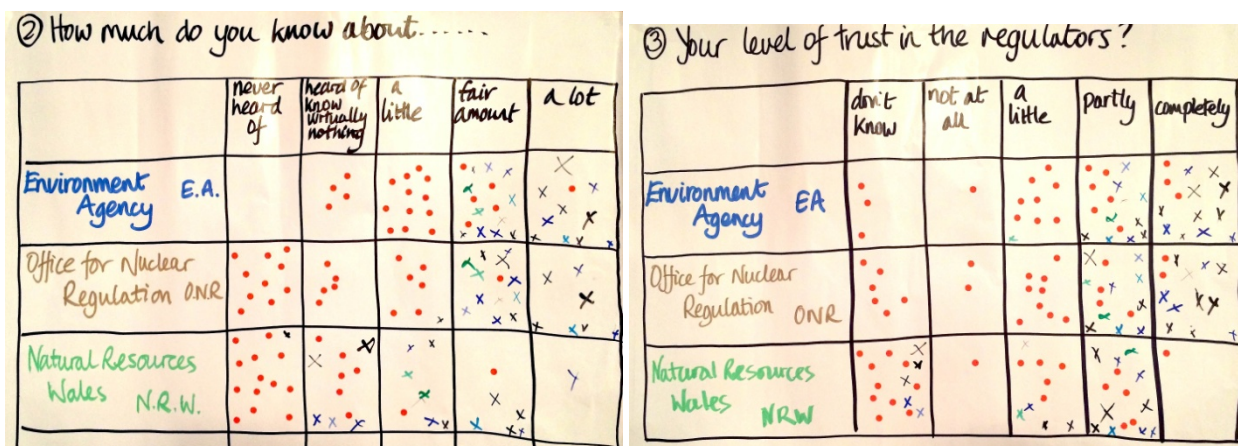 ② How much do you know about......
never heard of
heard of know virtually nothing
a little
fair amount
a lot
Environment Agency E.A.
Office for Nuclear Regulation O.N.R
Natural Resources Wales N.R.W.
③ Your level of trust in the regulators?
don't know
not at all
a little
partly
completely
Environment Agency EA
Office for Nuclear Regulation ONR
Natural Resources Wales NRW